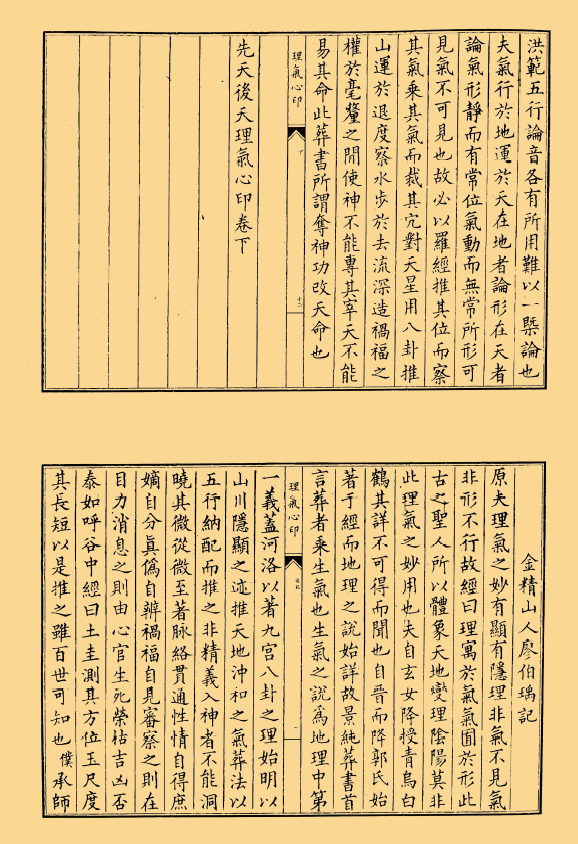 洪範五行論音各有所用難以一槩論也
夫氣行於地運於天在地者論形在天者
論氣形靜而有常位氣動而無常所形可
見氣不可見也故必以羅經推其位而察
其氣乘其氣而裁其穴對天星用八卦推
山運於退度察水步於去流深造禍福之
權於毫釐之閒使神不能專其宰天不能
易其命此葬書所謂奪神功改天命也
理氣心印
下
十二
先天後天理氣心印卷下
金精山人廖伯瑀記
原夫理氣之妙有顯有隱理非氣不見氣
非形不行故經曰理寓於氣氣囿於形此
古之聖人所以體象天地變理陰陽莫非
此理氣之妙用也夫自玄女降授青烏白
鶴其詳不可得而聞也自晉而降郭氏始
著于經而地理之說始詳故景純葬書首
言葬者乘生氣也生氣之說爲地理中第
理氣心印
後記
一義蓋河洛以著九宮八卦之理始明以
山川隱顯之迹推天地沖和之氣葬法以
五行納配而推之非精義入神者不能洞
曉其微從微至著脉絡貫通性情自得庶
嫡自分眞僞自辨禍福自見審察之則在
目力消息之則由心官生死榮枯吉凶否
泰如呼谷中經曰土圭測其方位玉尺度
其長短以是推之雖百世可知也僕承師